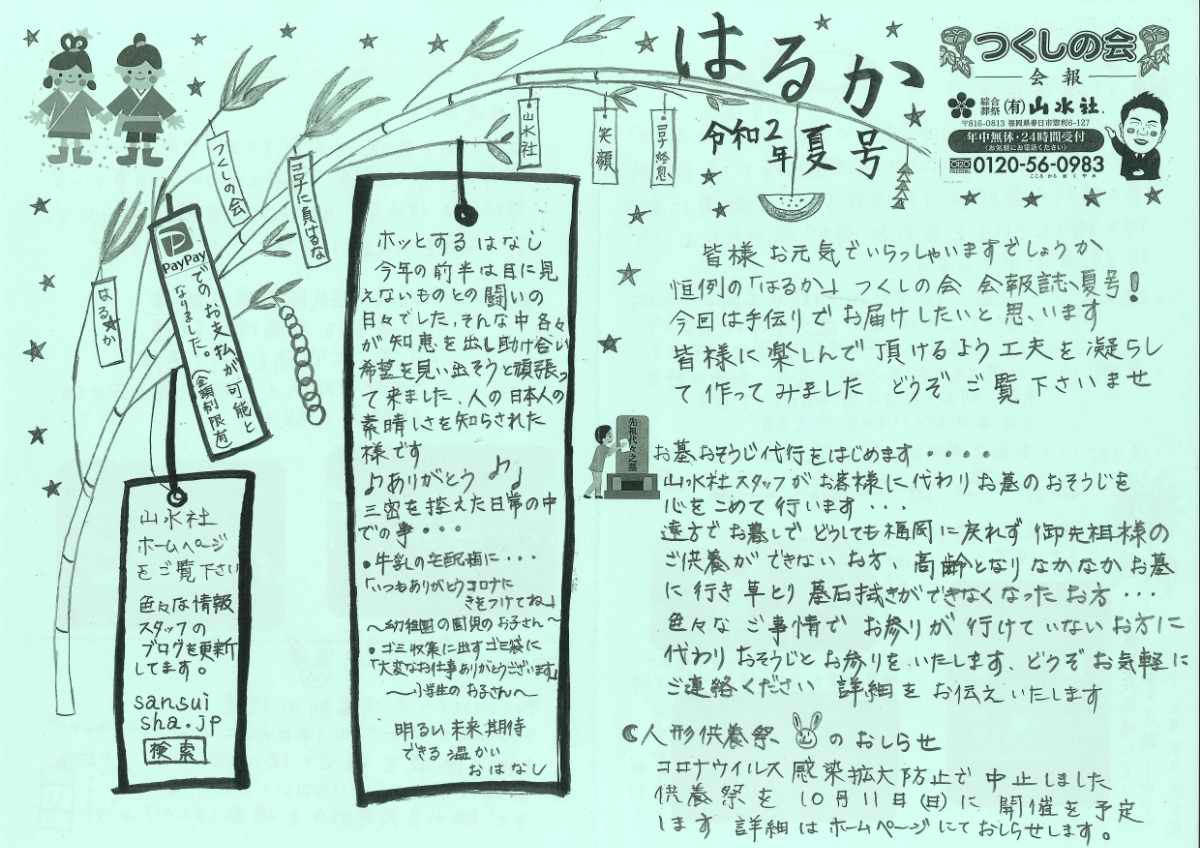 はるか
令和2年夏号
つくしの会
会報
綜合葬祭 (有)山水社
〒816-0813 福岡県春日市惣利6-127
年中無休・24時間受付
(お気軽にお電話ください)
0120-56-0983
こころ から おくやみ
皆様 お元気でいらっしゃいますでしょうか
恒例の「はるか」つくしの会 会報誌、夏号!
今回は手伝りで お届けしたいと思います
皆様に楽しんで頂けるよう工夫を凝らし
て作ってみました どうぞ ご覧下さいませ
先祖代々之墓
お墓おそうじ代行をはじめます・・・・
山水社スタッフがお客様に代わりお墓のおそうじを
心をこめて行います・・・
遠方でお墓しで どうしても福岡に戻れず 御先祖様の
ご供養ができないお方、高齢となりなかなかお墓
に行き草とり 墓石拭きができなくなったお方・・・
色々な ご事情で お参りが行けていないお方に
代わりおそうじとお参りをいたします、どうぞお気軽に
ご連絡ください 詳細を お伝えいたします
人形供養祭のおしらせ
コロナウイルス感染拡大防止で中止しました
供養祭を 10月11日(日)に 開催を予定
します 詳細はホームページにておしらせします。
コロナ終息
笑顔
山水社
コロナに負けるな
つくしの会
はるか
ホッとするはなし
今年の前半は目に見
えないものとの闘いの
日々でした、そんな中各々
が知恵を出し助け合い
希望を見い出そうと頑張っ
て来ました、人の日本人の
素晴しさを知らされた
様です
♪ありがとう♪♪
三密を控えた日常の中
での事・・・
・牛乳の宅配箱に・・・
「いつもありがとうコロナに
きをつけてね」
〜幼稚園の園児のお子さん〜
・ゴミ収集に出すゴミ袋に
「大変なお仕事ありがとうございます」
〜小学生のお子さん〜
明るい未来期待
できる温かい
おはなし
PayPay
でのお支払が可能と
なりました。(金額制限有)
山水社
ホームページ
をご覧下さい
色々な情報
スタッフの
ブログを更新
してます。
sansui
sha.jp
検索